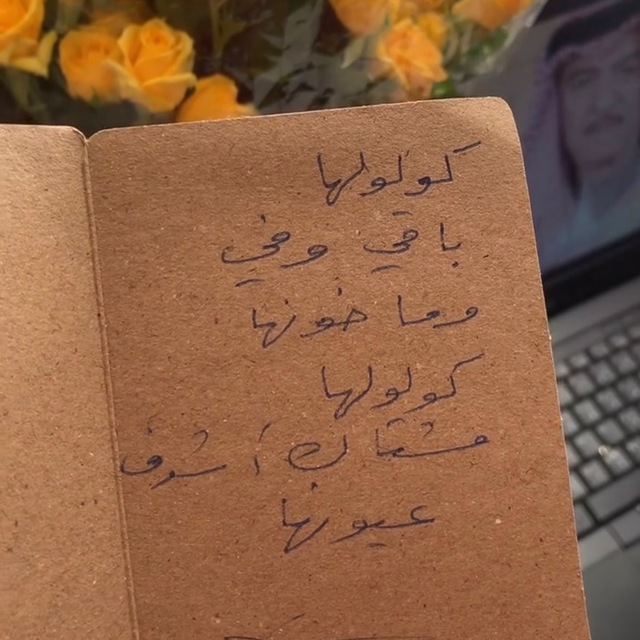 كولولها
باقي وفي
وما خونها
كولولها
مشتاك أشوف
عيونها